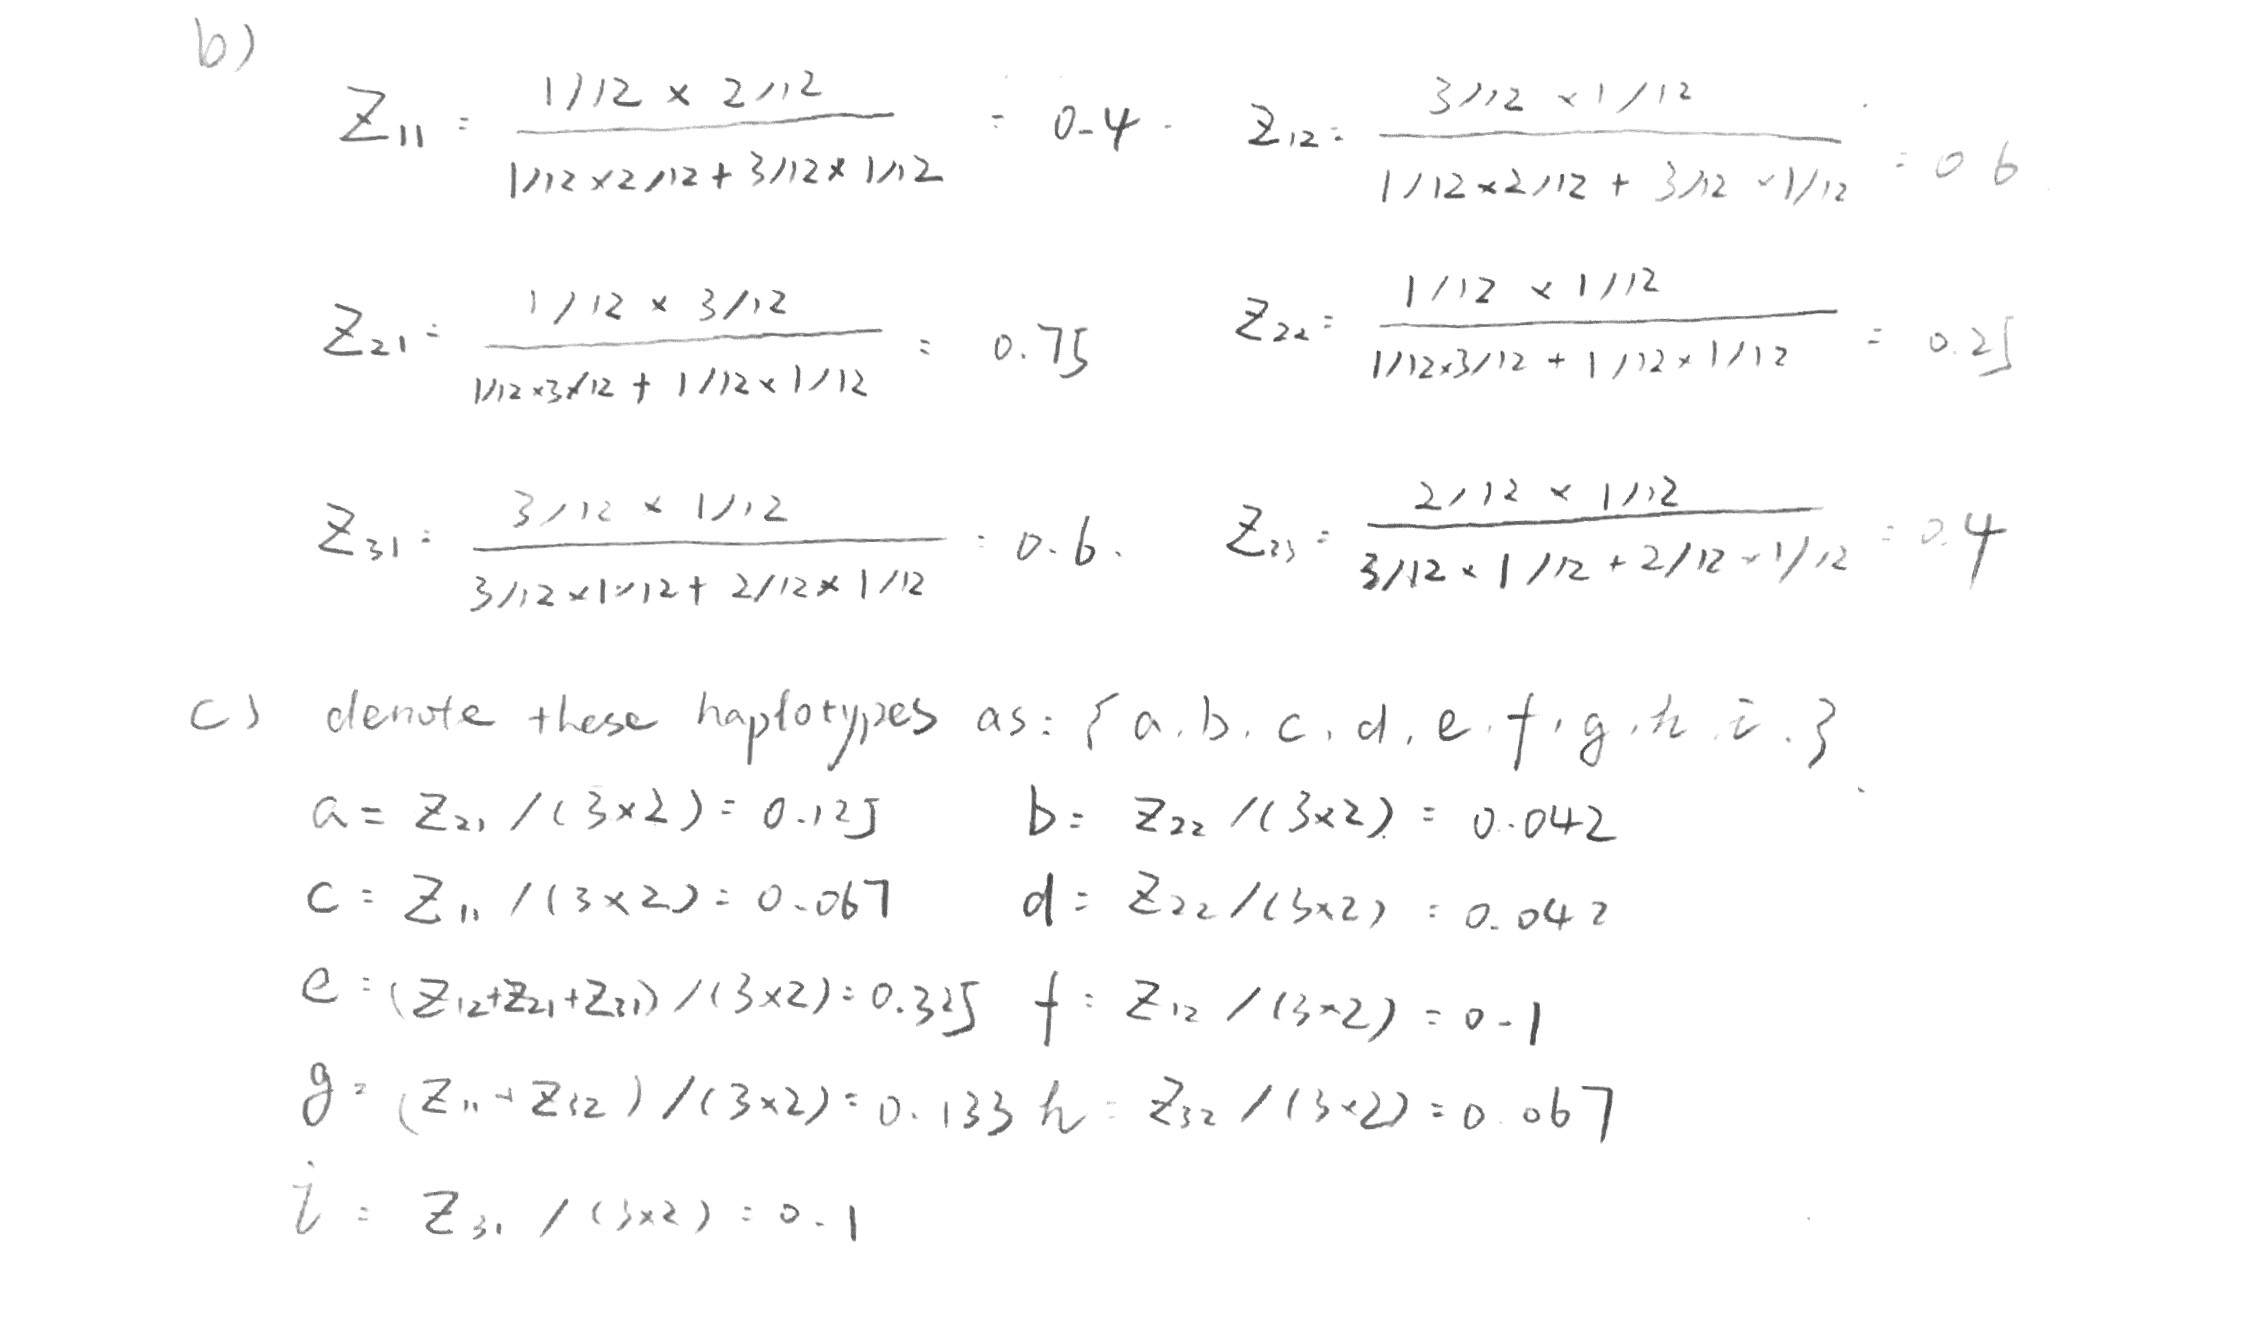 b)
Z11 = (1/12 × 2/12) / (1/12 × 2/12 + 3/12 × 1/12) = 0.4. Z12 = (3/12 × 1/12) / (1/12 × 2/12 + 3/12 × 1/12) = 0.6
Z21 = (1/12 × 3/12) / (1/12 × 3/12 + 1/12 × 1/12) = 0.75 Z22 = (1/12 × 1/12) / (1/12 × 3/12 + 1/12 × 1/12) = 0.25
Z31 = (3/12 × 1/12) / (3/12 × 1/12 + 2/12 × 1/12) = 0.6. Z33 = (2/12 × 1/12) / (3/12 × 1/12 + 2/12 × 1/12) = 0.4
c) denote these haplotypes as: {a, b, c, d, e, f, g, h, i.}
a = Z21 / (3×2) = 0.125 b = Z22 / (3×2) = 0.042
c = Z11 / (3×2) = 0.067 d = Z22 / (3×2) = 0.042
e = (Z12+Z21+Z31) / (3×2) = 0.325 f = Z12 / (3×2) = 0.1
g = (Z11 + Z32) / (3×2) = 0.133 h = Z32 / (3×2) = 0.067
i = Z31 / (3×2) = 0.1